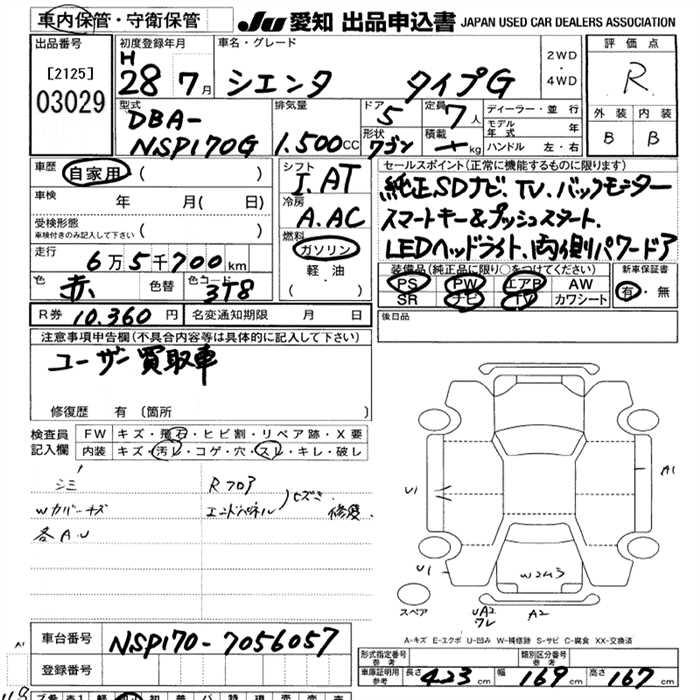 車内保管・守衛保管
JU 愛知 出品申込書 JAPAN USED CAR DEALERS ASSOCIATION
出品番号
[2125]
03029
初度登録年月
H
28 7月
車名・グレード
シエンタ タイプG
2WD
・
4WD
評価点
R
外装 内装
B B
型式
DBA-
NSP170G
排気量
1.500cc
ドア
5
定員
7人
形状
ワゴン
積載
kg
ディーラー・並行
モデル年式 年
ハンドル 左・右
車歴
自家用 ( )
車検
年 月( 日)
受検形態
車検付きのみ記入して下さい ( )
走行
6万5千700km
色
赤
色替
色コード
3T8
シフト
I.AT
冷房
A.AC
燃料
ガソリン
軽油
( ・ )
セールスポイント(正常に機能するものに限ります)
純正SDナビ.TV.バックモニター
スマートキー&プッシュスタート.
LEDヘッドライト.両側パワードア
装備品(純正品に限り○をつけてください)
PS PW エアB AW
SR ナビ TV カワシート
新車保証書
有・無
R券 10.360円
名変通知期限 月 日
後日品
注意事項申告欄(不具合内容等は具体的に記入して下さい)
ユーザー買取車
修復歴 有 〔箇所 〕
検査員
記入欄
FW キズ・飛石・ヒビ割・リペア跡・X要
内装 キズ・汚レ・コゲ・穴・スレ・キレ・破レ
シミ
Rフロア
Wカバーキズ
エンドパネル
ヒズミ 修復.
各AU
A1
U1
U1
W2U3
スペア
UA2
ワレ
A2
A-キズ E-エクボ U-凹み W-補修跡 S-サビ C-腐食 XX-交換済
A1
車台番号
NSP170-7056057
登録番号
形式指定番号
参考
類別区分番号
参考
車庫証明用
参考
長さ 423cm
幅 169cm
高さ 167cm